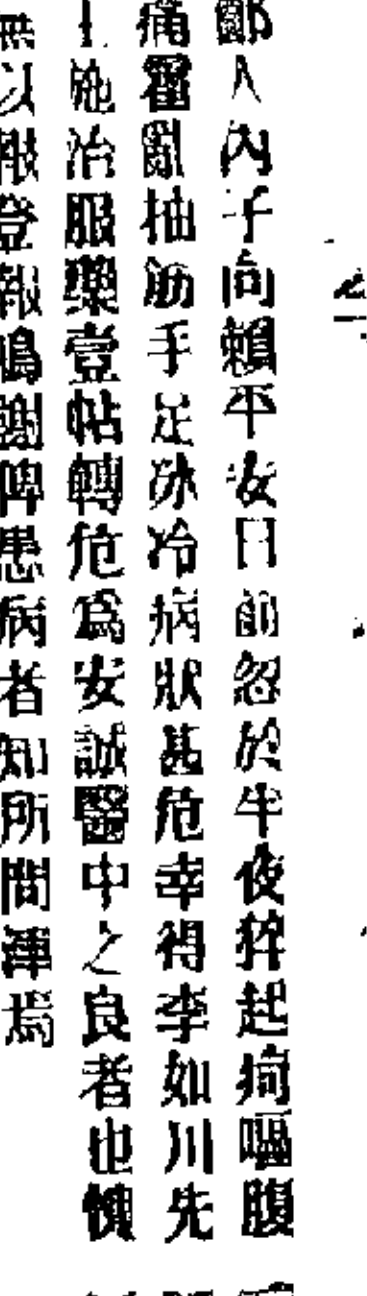 鄙人內子向賴平安日前忽於半夜猝起痾嘔腹
痛霍亂抽筋手足冰冷病狀甚危幸得李如川先
生施治服藥壹帖轉危爲安誠醫中之良者也愧
無以報登報鳴謝俾患病者知所問津焉